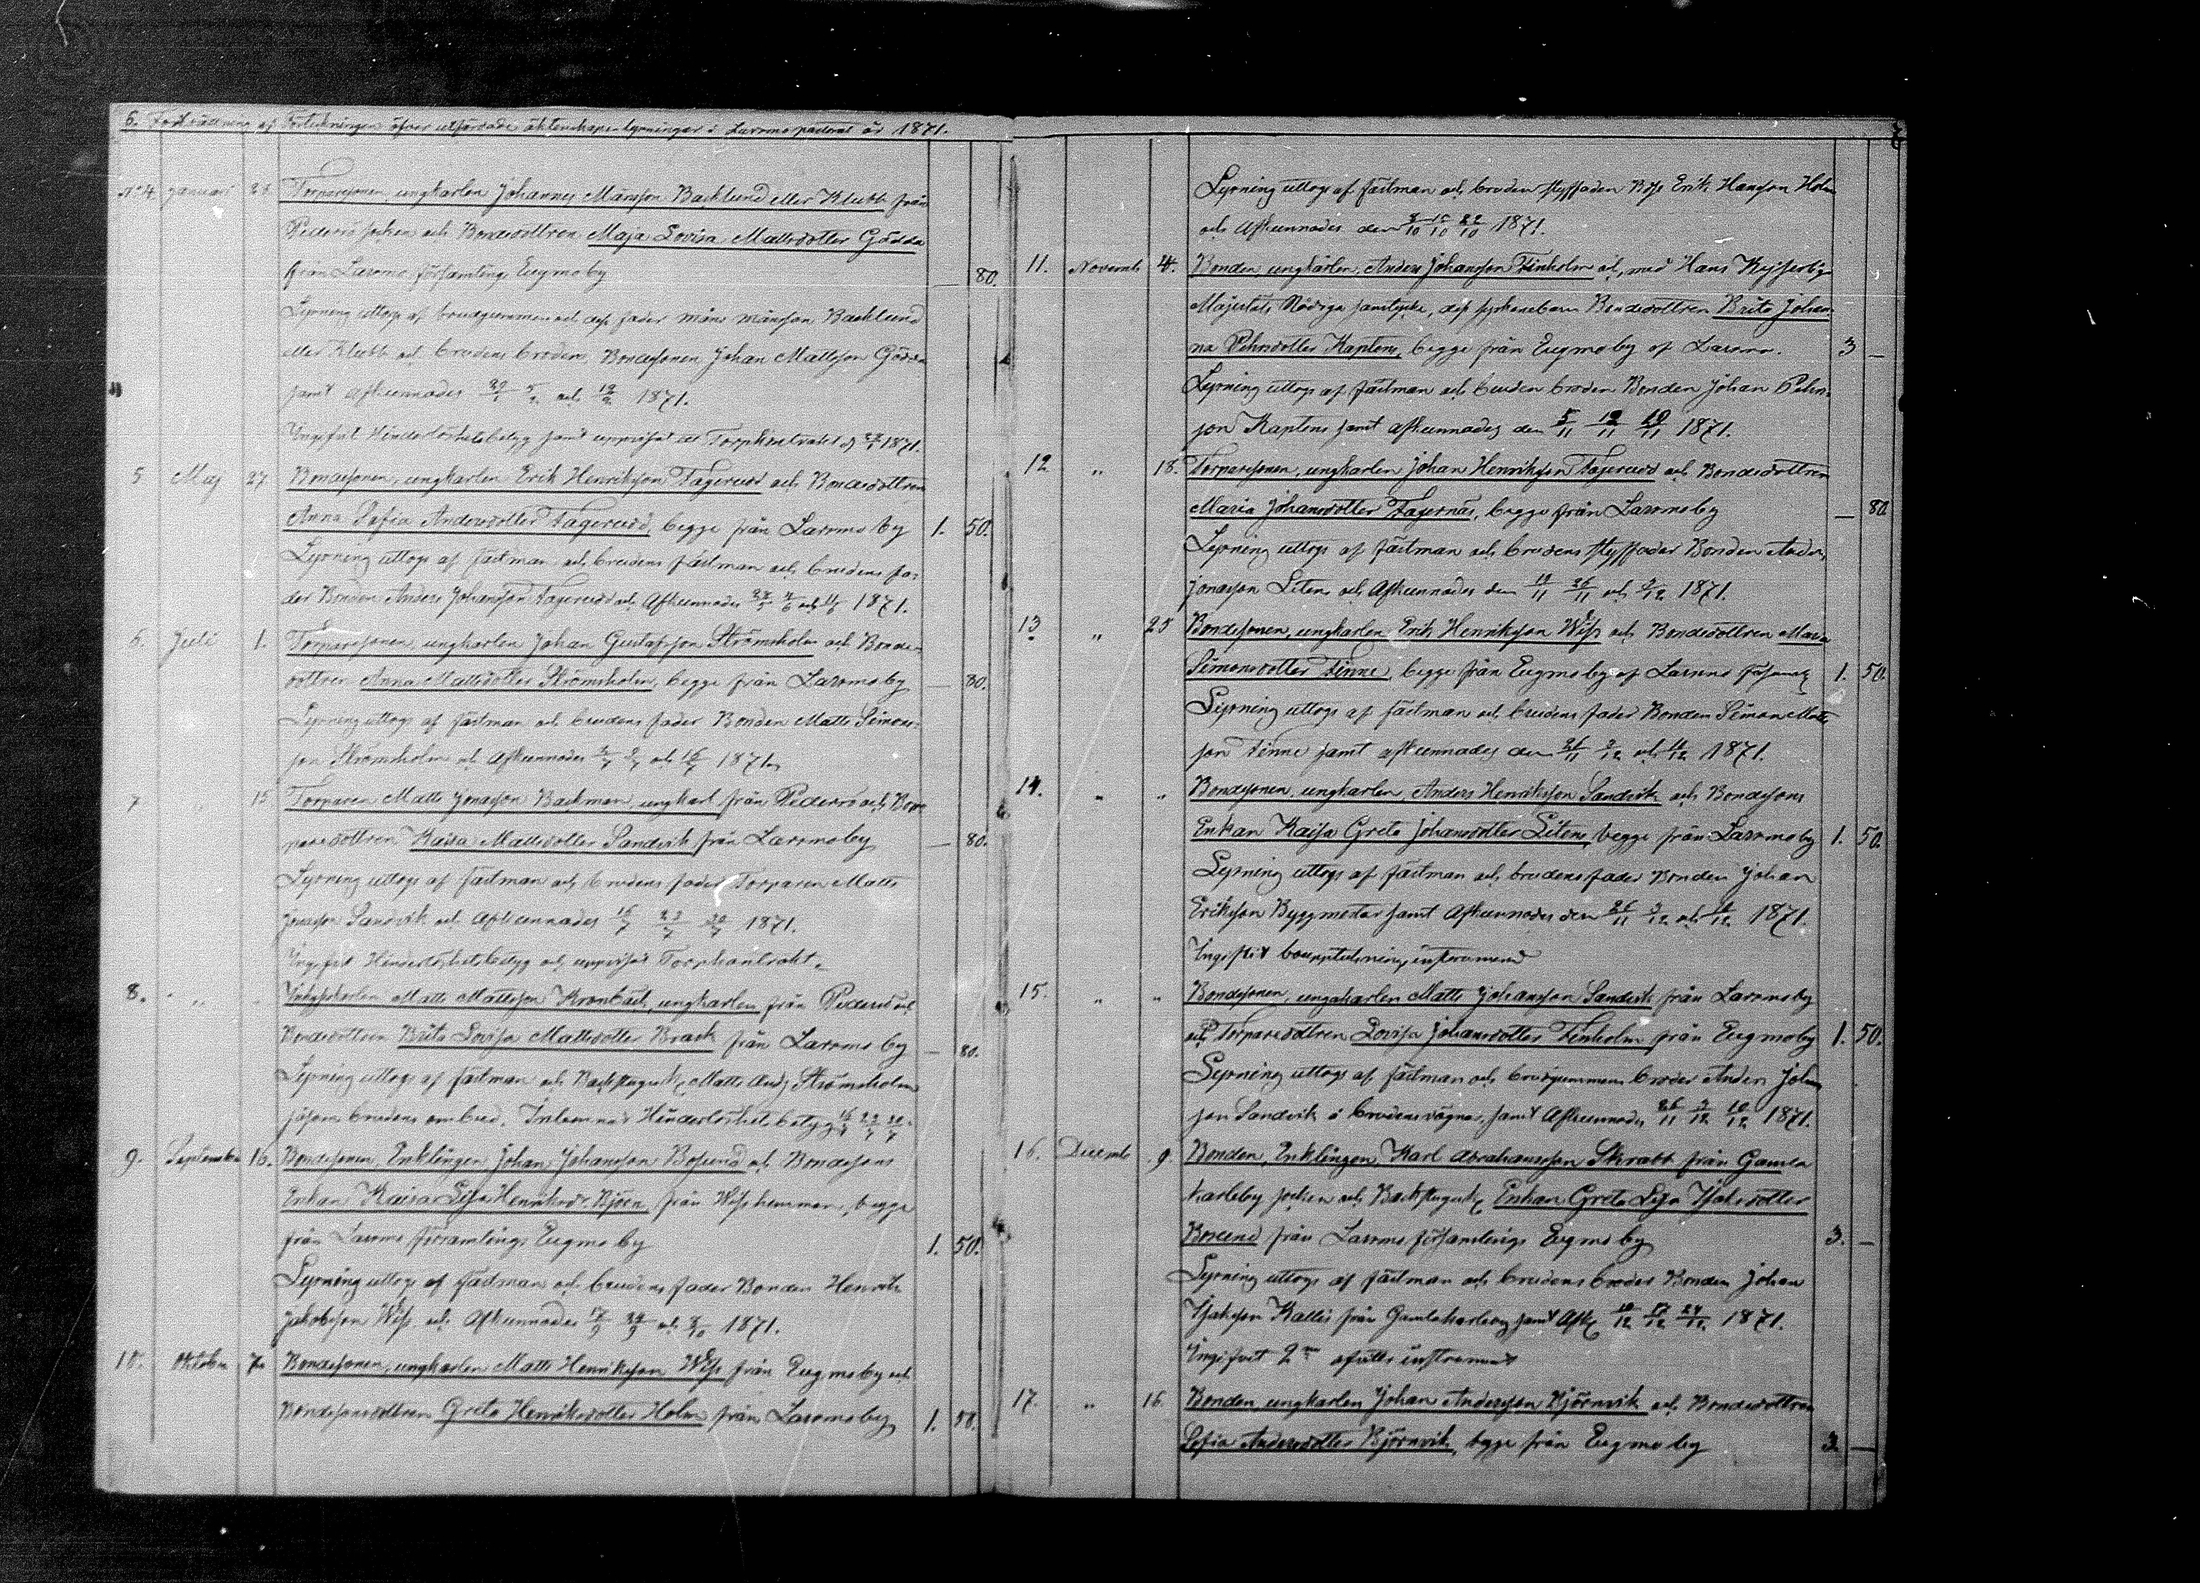 6. Fortsättning af Förteckningen öfver utfärdade äktenskapslysningar i Larsmo pastorat år 1871.
No 4 Januari 28 Torparesonen, ungkarlen Johannes Månsson Backlund eller Klubb från
Pedersö socken och Bondedottren Maja Lovisa Mattsdotter Gödda
från Larsmo församlings Eugmo by — 80.
Lysning uttogs af brudgummen och dess fader Måns Månsson Backlund
eller Klubb och brudens broder, Bondesonen Johan Mattsson Gödda
samt afkunnades 29/1 5/2 och 12/2 1871.
Ingifvit Hinderlöshetsbetyg samt uppvisat ett Torpkontrakt 1871.
5 Maj 27 Bondesonen, ungkarlen Erik Henriksson Fagerudd och Bondedottren
Anna Sofia Andersdotter Fagerudd, begge från Larsmo by 1. 50.
Lysning uttogs af fästman och brudens fästman och brudens fa-
der Bonden Anders Johansson Fagerudd och Afkunnades 28/5 4/6 och 11/6 1871.
6. Juli 1. Torparesonen, ungkarlen Johan Gustafsson Strömsholm och Bonde-
dottren Anna Mattsdotter Strömsholm, begge från Larsmo by — 80.
Lysning uttogs af fästman och brudens fader Bonden Matts Simons-
son Strömsholm och Afkunnades 2/7 9/7 och 16/7 1871.
7 15 Torparen Matts Jonasson Backman, ungkarl från Pedersö och Tor-
paredottren Kaisa Mattsdotter Sandvik från Larsmo by — 80.
Lysning uttogs af fästman och brudens fader Torparen Matts
Jonasson Sandvik och Afkunnades 16/7 23/7 30/7 1871.
Ingifvit Hinderlöshetsbetyg och uppvisat Torpkontrakt.
8. " " Inhysekarlen Matts Mattsson Kronqvist, ungkarlen från Pedersö och
Bondedottren Brita Lovisa Mattsdotter Brask från Larsmo by — 80.
Lysning uttogs af fästman och Backstugusk. Matts And: Strömsholm
såsom brudens ombud. Inlemnat Hinderlöshetsbetyg 16/7 23/7 30/7
9. September 16. Bondesonen, Enklingen Johan Johansson Bosund och Bondesons
Enkan Kaisa Lisa Henriksdr Björn, från Wiss hemman, begge
från Larsmo församlings Eugmo by 1. 50.
Lysning uttogs af fästman och brudens fader Bonden Henrik
Jakobsson Wiss och Afkunnades 17/9 24/9 och 8/10 1871.
10. Oktober 7. Bondesonen, ungkarlen Matts Henriksson Wiss från Eugmo by och
Bondesonsdottren Greta Henriksdotter Holm från Larsmo by 1. 50.
Lysning uttogs af fästman och brudens styffader Bdsn Erik Hansson Holm
och Afkunnades den 8/10 15/10 22/10 1871.
11. Novemb 4. Bonden ungkarlen, Anders Johansson Finholm och, med Hans Kejserliga
Majestäts Nådiga samtycke, dess syskonebarn Bondedottren Brita Johan-
na Pehrsdotter Kaptens, begge från Eugmo by af Larsmo. 3 —
Lysning uttogs af fästman och brudens broder Bonden Johan Pehrs-
son Kaptens samt afkunnades den 5/11 12/11 19/11 1871.
12 " 18. Torparesonen, ungkarlen Johan Henriksson Fagerudd och Bondedottren
Maria Johansdotter Fagernäs, begge från Larsmo by — 80
Lysning uttogs af fästman och brudens styffader Bonden Anders
Jonasson Liten och Afkunnades den 19/11 26/11 och 3/12 1871.
13 " 25 Bondesonen, ungkarlen Erik Henriksson Wiss och Bondedottren Maria
Simonsdotter Finne, begge från Eugmo by af Larsmo församl 1. 50
Lysning uttogs af fästman och brudens fader Bonden Simon Matts-
son Finne samt afkunnades den 26/11 3/12 och 10/12 1871.
14. " " Bondesonen, ungkarlen, Anders Henriksson Sandvik och Bondesons
Enkan Kajsa Greta Johansdotter Liten, begge från Larsmo by 1. 50.
Lysning uttogs af fästman och brudens fader Bonden Johan
Eriksson Byggmästar samt Afkunnades den 26/11 3/12 och 10/12 1871.
Ingifvit bouppteckningsinstrument
15. " " Bondesonen, ungkarlen Matts Johansson Sandvik från Larsmo by
och Torparedottren Lovisa Johansdotter Finholm från Eugmo by 1. 50.
Lysning uttogs af fästman och brudgummens broder Anders Johans-
son Sandvik å brudens vägnar, samt Afkunnades 26/11 3/12 10/12 1871.
16. Decemb 9 Bonden, Enklingen, Karl Abrahamsson Skrabb från Gamla
karleby socken och Backstugusk. Enkan Greta Lisa Isaksdotter
Bosund från Larsmo församlings Eugmo by 3. —
Lysning uttogs af fästman och brudens broder Bonden Johan
Isaksson Kallis från Gamlakarleby samt Afk. 10/12 17/12 24/12 1871.
Ingifvit 2ne afvittr. instrument
17. " 16 Bonden, ungkarlen Johan Andersson Björnvik och Bondedottren
Sofia Andersdotter Björnvik, begge från Eugmo by 3. —